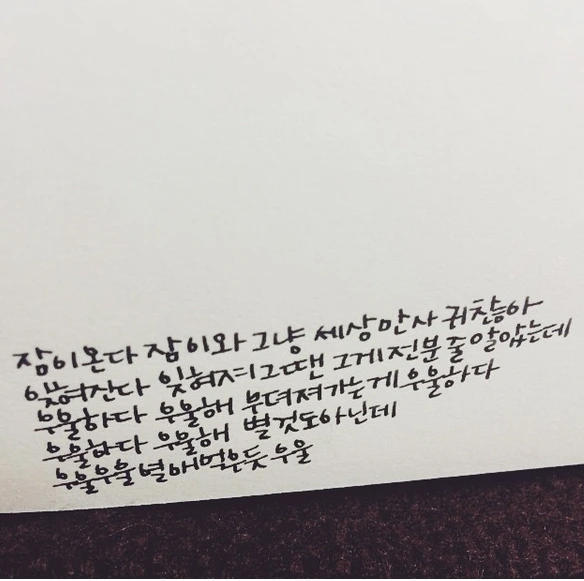 잠이온다 잠이와 그냥 세상만사 귀찮아
잊혀진다 잊혀져 그땐 그게 전분 줄 알았는데
우울하다 우울해 무뎌져가는게 우울하다
우울하다 우울해 별것도아닌데
우울우울열매먹은듯 우울